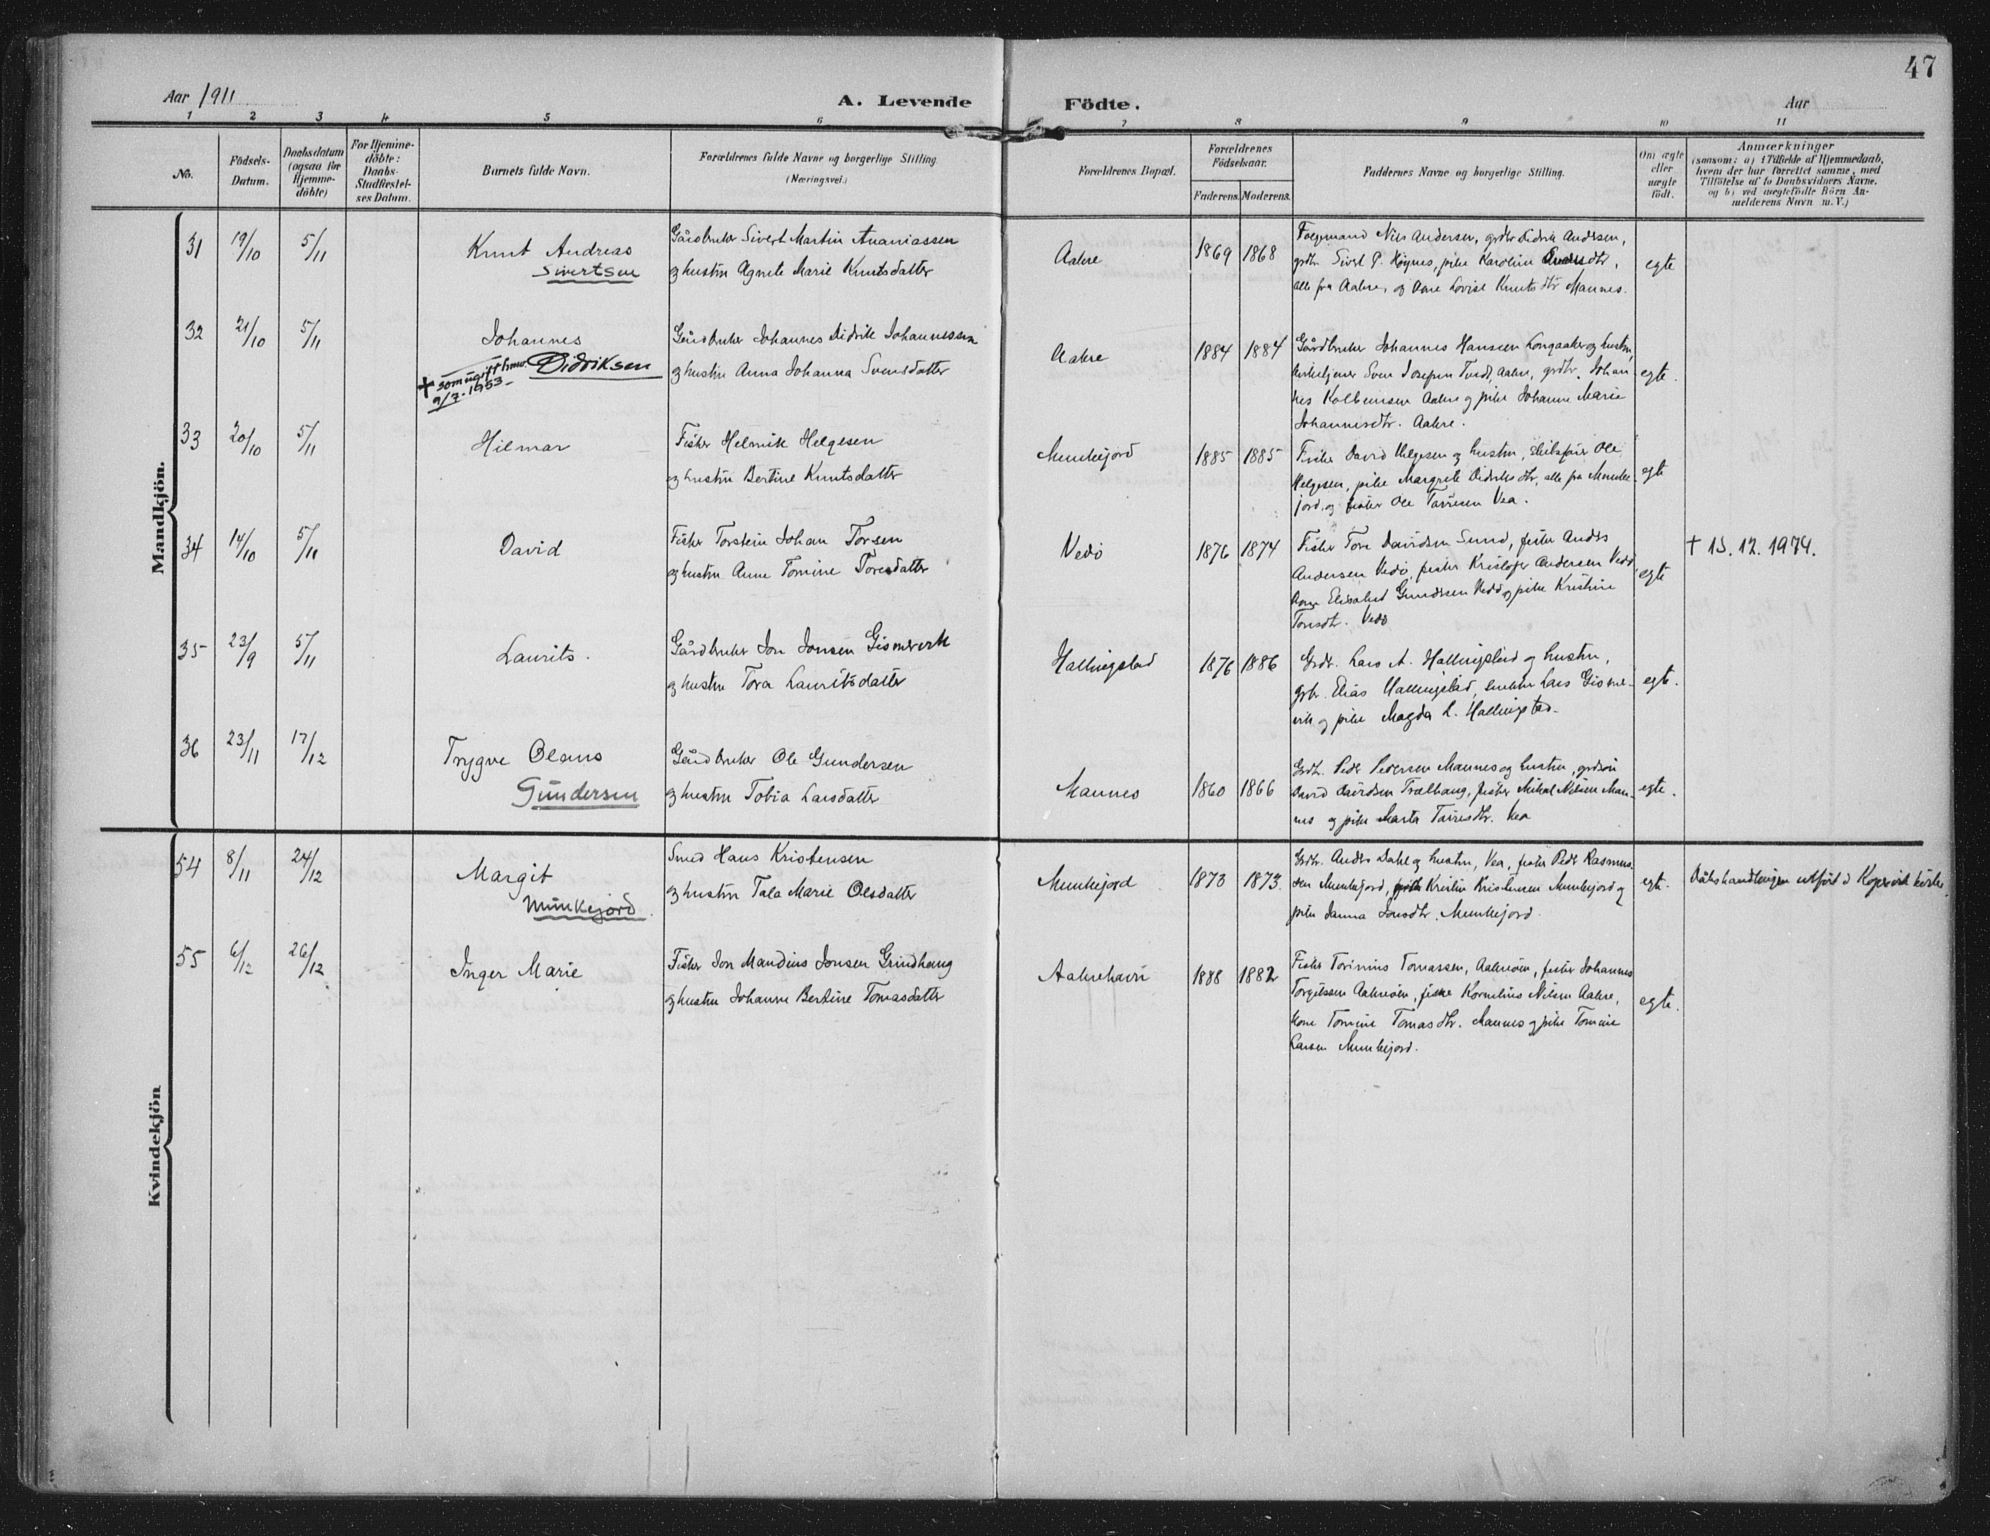 47
Aar 1911
A. Levende Födte.
Aar
1 2 3 4 5 6 7 8 9 10 11
No.
Födsels-
Datum.
Daabsdatum
(ogsaa for
Hjemme-
döbte)
For Hjemme-
döbte:
Daabs-
Stadfæstel-
ses Datum.
Barnets fulde Navn.
Forældrenes fulde Navne og borgerlige Stilling
(Næringsvei.)
Forældrenes Bopæl.
Forældrenes
Födselsaar.
Faderens. Moderens.
Faddernes Navne og borgerlige Stilling.
Om ægte
eller
uægte
födt.
Anmærkninger
(saasom: a) i Tilfælde af Hjemmedaab,
hvem der har forrettet samme, med
Tilföielse af to Daabsvidners Navne,
og b) ved uægtefödte Börn An-
melderens Navn m. V.)
Mandkjön.
31 19/10 5/11
Knut Andreas
Sivertsen
Gårdbruker Sivert Martin Ananiassen
og hustru Agnete Marie Knutsdatter
Aakre
1869 1868
Nils Andersen, grdbr. Didrik Andersen,
grdbr. Sivert P. Høynes, pike Karoline
alle fra Aakre, og Lovise Knutsdtr. Mannes.
egte
32 21/10 5/11
Johannes
Didriksen
+ som ugift
9/7-1953-
Gårdbruker Johannes Didrik Johannessen
og hustru Anna Johanna Svensdatter
Aakre
1884 1884
Gårdbruker Johannes Hanssen Longaaker og hustru,
Sven Josefsen Tveit, Aakre, grdbr. Johan-
nes Kolbensen Aakre og pike Johanne Marie
Johannesdtr. Aakre.
egte.
33 20/10 5/11
Hilmar
Fisker Helmik Helgesen
og hustru Bertine Knutsdatter
Munkejord
1885 1885
Fisker David Helgesen og hustru, Ole
Helgesen, pike Margrete Didriksdtr, alle fra Munke-
jord, og fisker Ole Tavresen Vea.
egte
34 14/10 5/11
David
Fisker Torstein Johan Torsen
og hustru Anne Tomine Toresdatter
Vedö
1876 1874
Fisker Tore Davidsen Sund, fisker Anders
Andersen Vedö, fisker Kristofer Andersen Vedö,
Elisabet Gundersen Vedö og pike Kristine
Toresdtr. Vedö
egte
+ 15.12.1974.
35 23/9 5/11
Laurits.
Gårdbruker Jon Jonsen Gismervik
og hustru Tora Lauritsdatter
Hallingstad
1876 1886
Grdbr. Lars A. Hallingstad og hustru,
grbr. Elias Hallingstad, Lars Gismer-
vik og pike Magda L. Hallingstad.
egte.
36 23/11 17/12
Trygve Olaus
Gundersen
Gårdbruker Ole Gundersen
og hustru Tobia Larsdatter
Mannes
1860 1866
Grdbr. Peder Pedersen Mannes og hustru,
David Davidsen Trælhaug, fisker Mikal Nilsen Man-
nes og pike Marta Tavresdtr. Vea
egte.
Kvindekjön
54 8/11 24/12
Margit
Munkejord.
Smed Hans Kristensen
og hustru Tala Marie Olsdatter
Munkejord
1873 1873.
Grdbr. Anders Dahl og hustru, Vea, fisker Peder Rasmus-
sen Munkejord, Kristine Kristensen Munkejord og
pike Janna Jonsdtr. Munkejord.
egte.
Dåbshandlingen utfört i Kopervik kirke.
55 6/12 26/12
Inger Marie
Fisker Jon Mandius Jonsen Grindhaug
og hustru Johanne Bertine Tomasdatter
Aakrehavn
1888 1882
Fisker Torinius Tomassen, Aakreöen, fisker Johannes
Torgilssen Aakreöen, Kornelius Nilsen Aakre,
kone Tomine Tomasdtr. Mannes og pike Tomine
Larsen Munkejord.
egte.